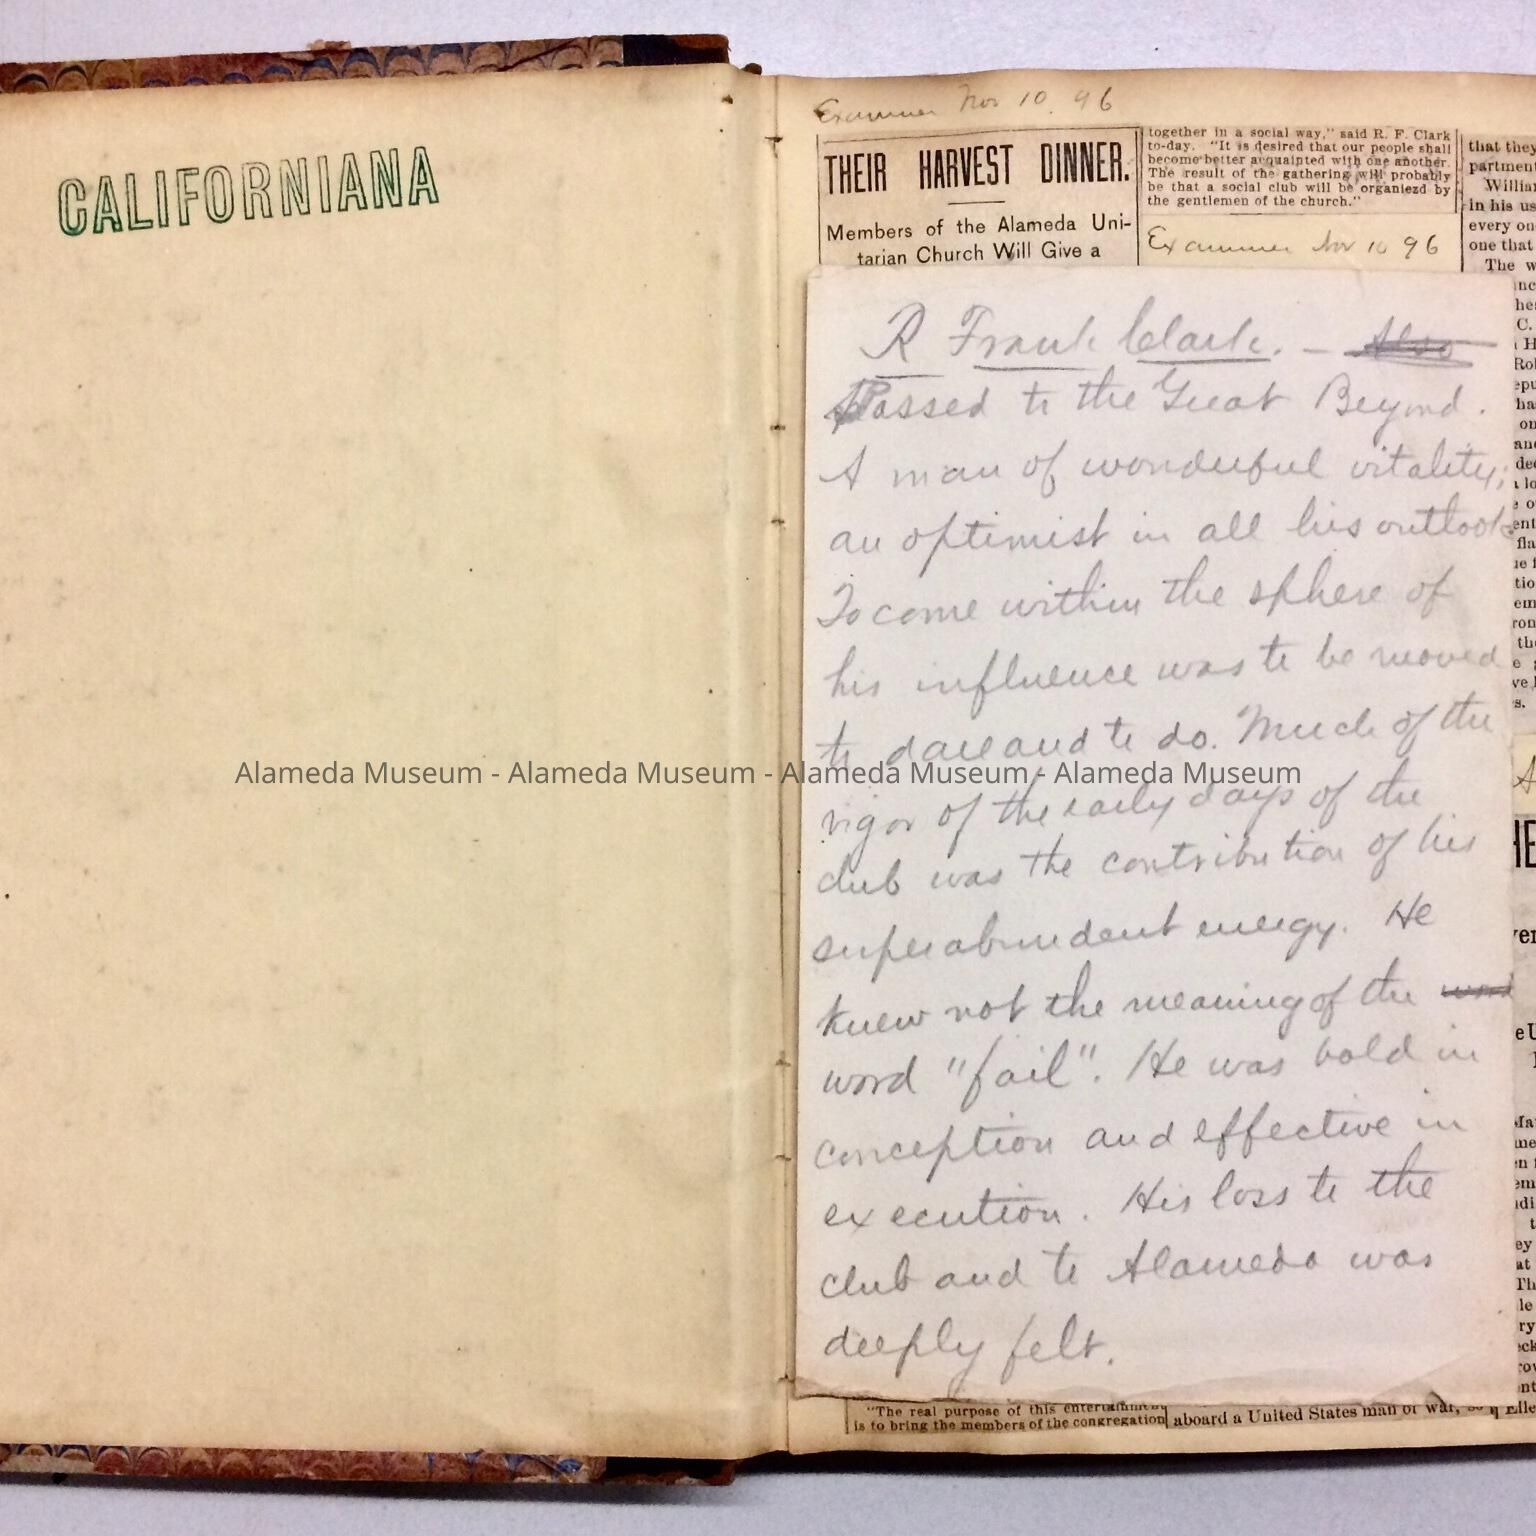 CALIFORNIANA
Examiner Nov 10. 96
THEIR HARVEST DINNER.
Members of the Alameda Uni-
tarian Church Will Give a
together in a social way," said R. F. Clark
to-day. "It is desired that our people shall
become better acquainted with one another.
The result of the gathering will probably
be that a social club will be organiezd by
the gentlemen of the church."
Examiner Nov 10 96
that they
in his us
every on
one that
The w
R Frank Clark. — Also
Passed to the Great Beyond.
A man of wonderful vitality;
an optimist in all his outlook
To come within the sphere of
his influence was to be moved
to dare and to do. Much of the
vigor of the early days of the
club was the contribution of his
superabundent energy. He
knew not the meaning of the word
word "fail". He was bold in
conception and effective in
execution. His loss to the
club and to Alameda was
deeply felt.
"The real purpose of this entertainment
is to bring the members of the congregation
aboard a United States man of war,
Alameda Museum - Alameda Museum - Alameda Museum - Alameda Museum